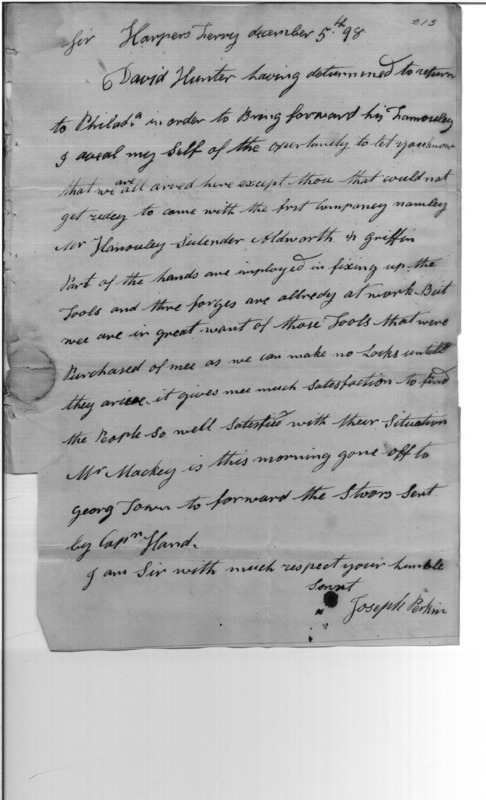 213
Sir Harpers Ferry december 5.th 98
David Hunter having determined to return
to Philada in order to Bring forward his Famouley
I aveal my Self of the opertunety to let you know
that we are all arved here except those that could not
get redey to come with the first Companey namley
Mr Hanouley Sulender Aldworth & Griffin
Part of the hands are imployed in fixing up the
Tools and thre forges are allredy at work But
wee are in great want of those Tools that were
Purchased of mee as we can make no Locks untill
they arive it gives mee much Satesfaction to find
the People So well Satesfied with their Situation
Mr Mackey is this morning gone off to
Georg Town to forward the Stoors Sent
by Capn Hand.
I am Sir with much respect your humble
Servt
Joseph Perkin